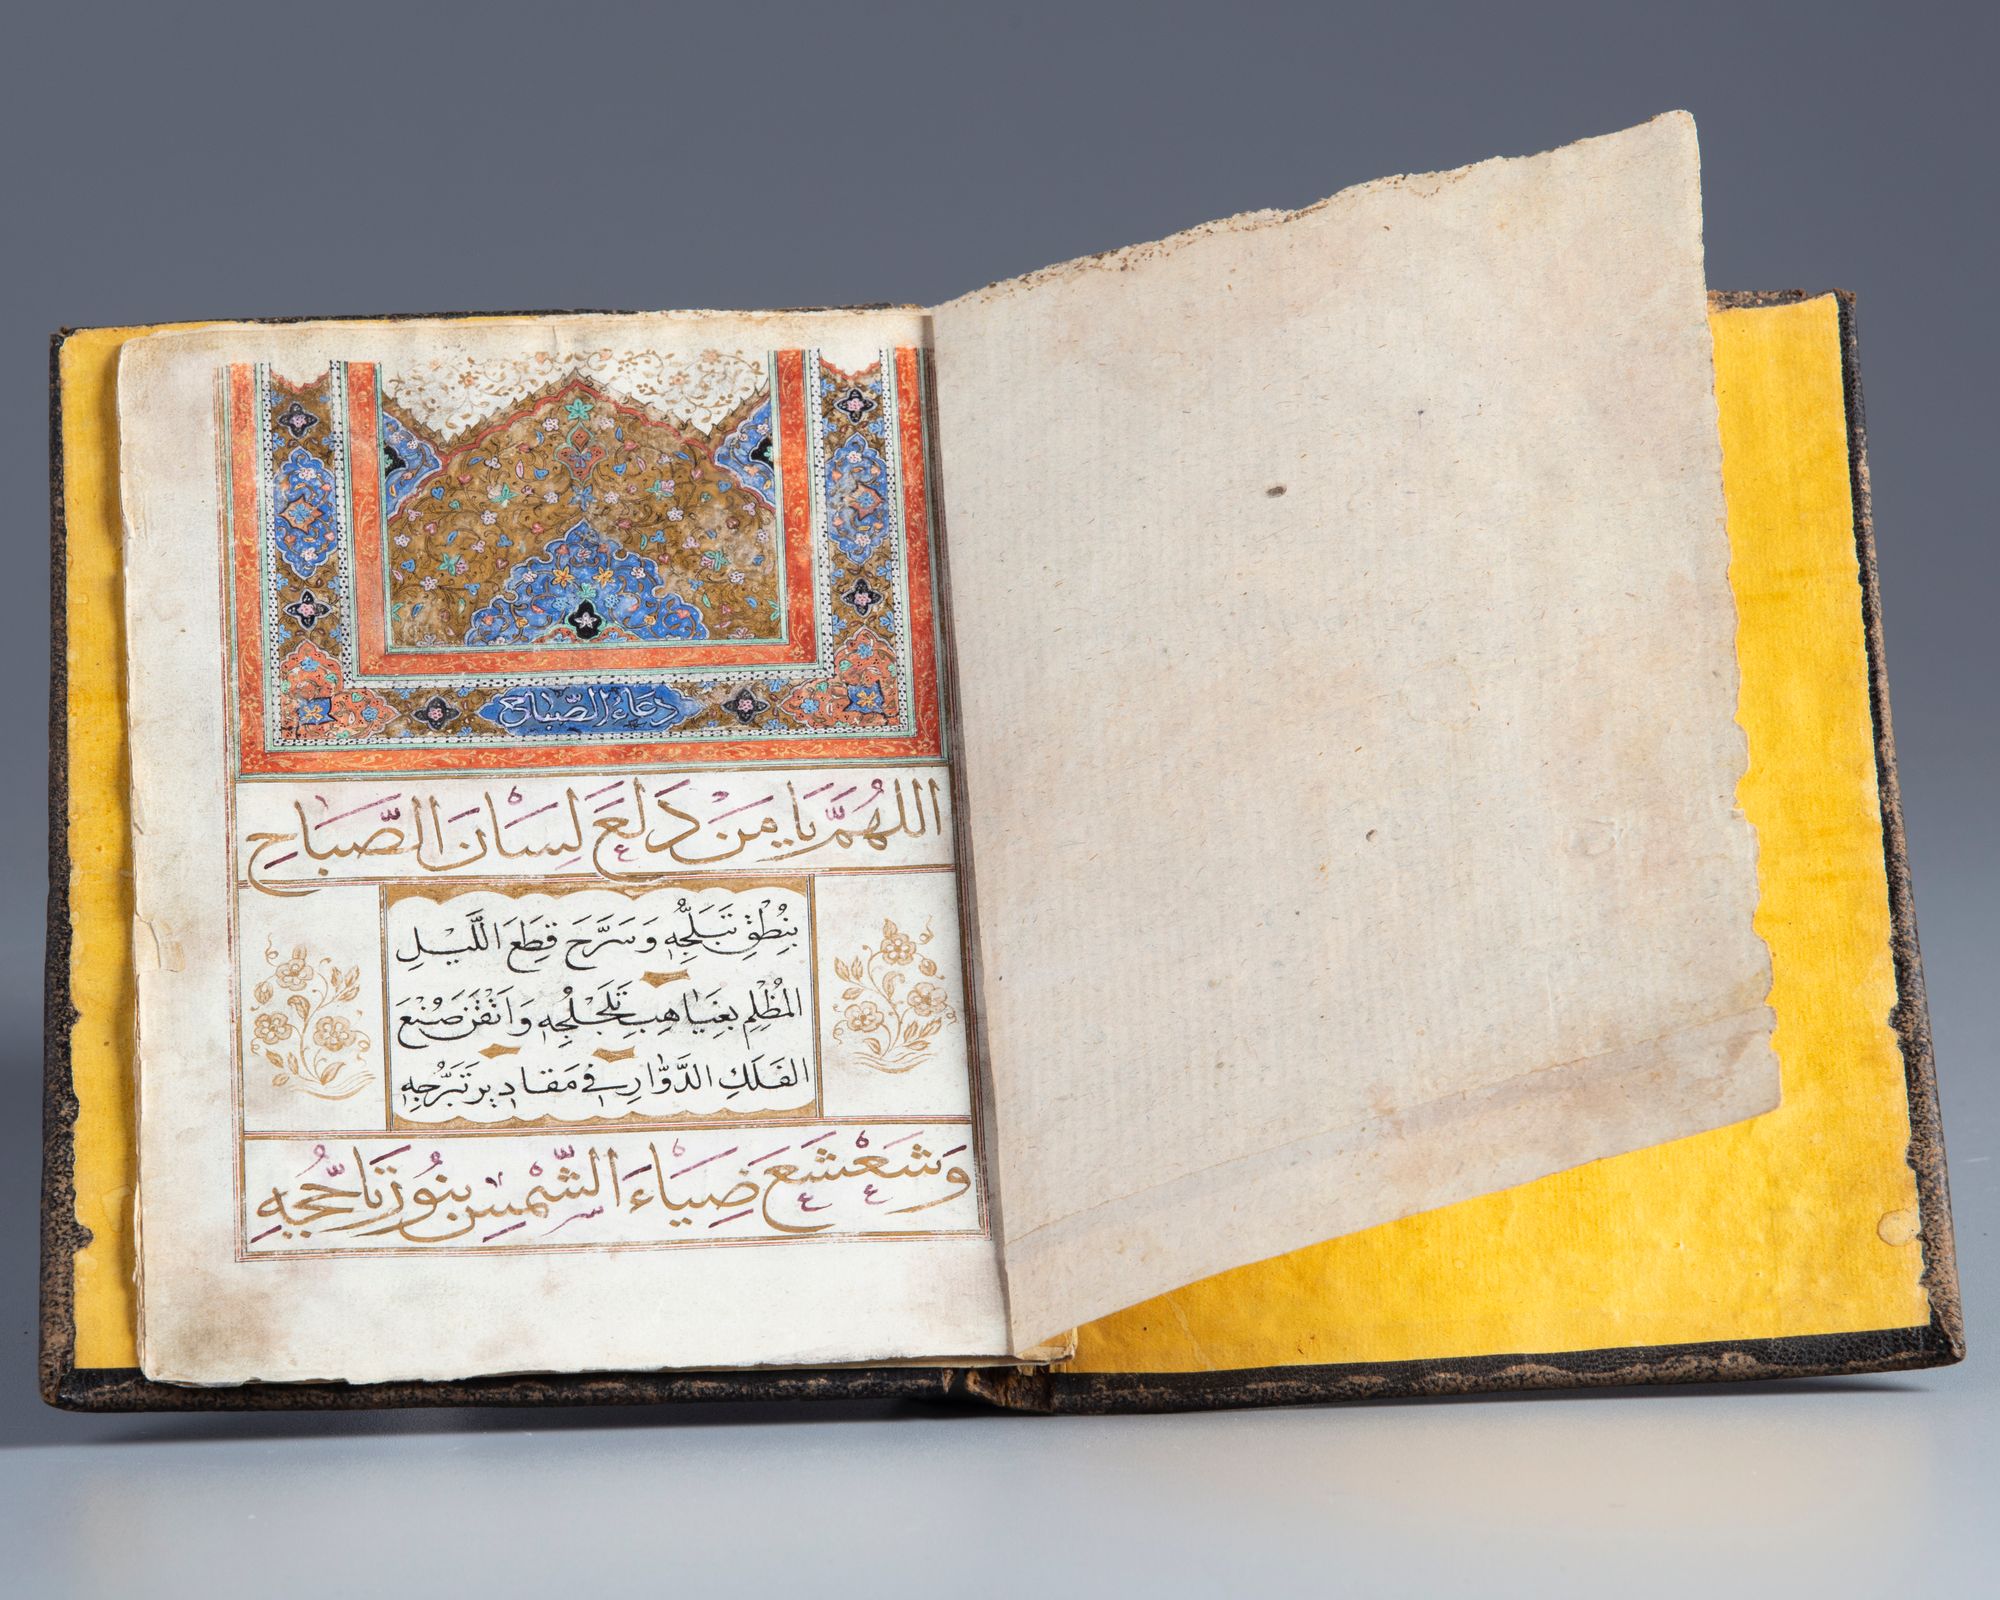 دعاء الصباح
اللَّهُمَّ يَا مَنْ دَلَعَ لِسَانَ الصَّبَاحِ
بِنُطْقِ تَبَلُّجِهِ وَسَرَّحَ قِطَعَ اللَّيْلِ
المُظْلِمِ بِغَيَاهِبِ تَلَجْلُجِهِ وَاَتْقَنَ صُنْعَ
الفَلَكِ الدَّوَّارِ فِي مَقَادِيرِ تَبَرُّجِهِ
وَشَعْشَعَ ضِيَاءَ الشَّمْسِ بِنُورِ تَاَجُّجِهِ